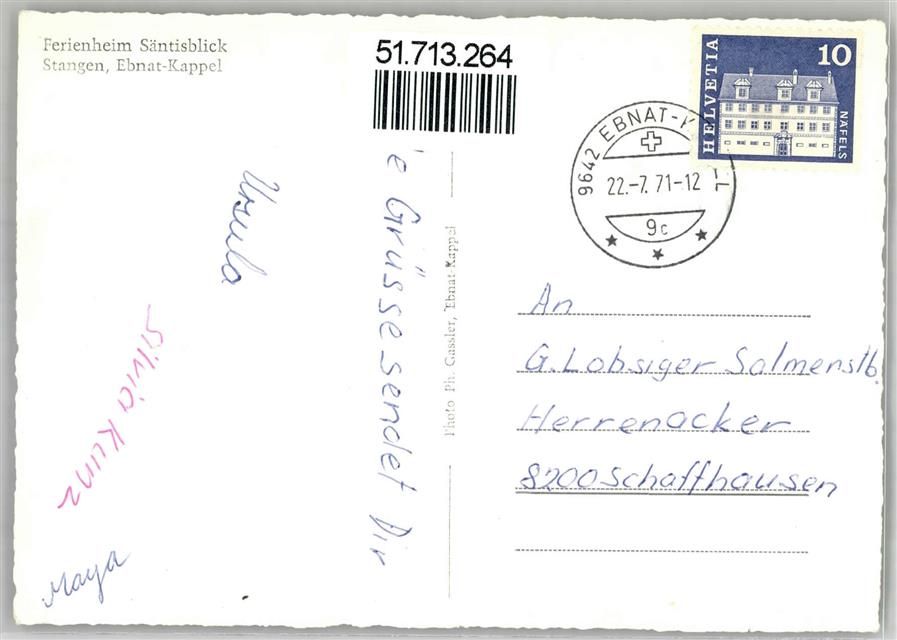 Ferienheim Säntisblick
Stangen, Ebnat-Kappel
51.713.264
HELVETIA
10
NÄFELS
9642 EBNAT-K
22.-7.71-12
9c
'e Grüsse sendet Dir
Ursula
Silvia Kunz
Maya
Photo Ph. Gassler, Ebnat-Kappel
An
G. Lobsiger Salmenstb.
Herrenacker
8200 Schaffhausen